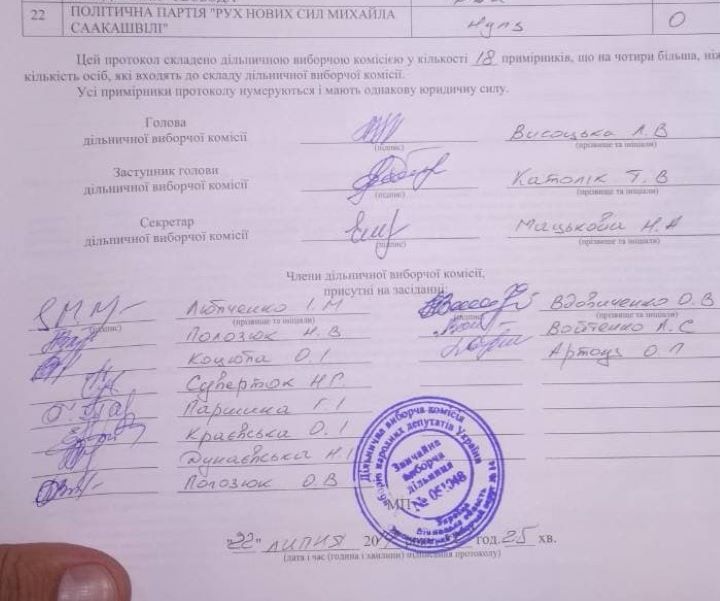 22 ПОЛІТИЧНА ПАРТІЯ "РУХ НОВИХ СИЛ МИХАЙЛА СААКАШВІЛІ" нуль 0
Цей протокол складено дільничною виборчою комісією у кількості 18 примірників, що на чотири більша, ніж
кількість осіб, які входять до складу дільничної виборчої комісії.
Усі примірники протоколу нумеруються і мають однакову юридичну силу.
Голова
дільничної виборчої комісії Висоцька Л.В
(підпис) (прізвище та ініціали)
Заступник голови
дільничної виборчої комісії Католік Т.В
(підпис) (прізвище та ініціали)
Секретар
дільничної виборчої комісії Мацькова Н.А
(підпис) (прізвище та ініціали)
Члени дільничної виборчої комісії,
присутні на засіданні:
Любченко І.М Вдовиченко О.В
(підпис) (прізвище та ініціали) (підпис) (прізвище та ініціали)
Полозюк Н.В Войтенко Л.С
Коцюба О.І О.П
Суверток Н.Г.
Паршина Г.І
Краєвська О.І
Дунаєвська Н.І
Полозюк О.В
Дільнична виборча комісія
народних депутатів України
Звичайна
виборча
дільниця
№ 051048
МП
"22" липня 20 год. 25 хв.
(дата і час (година і хвилини) підписання протоколу)